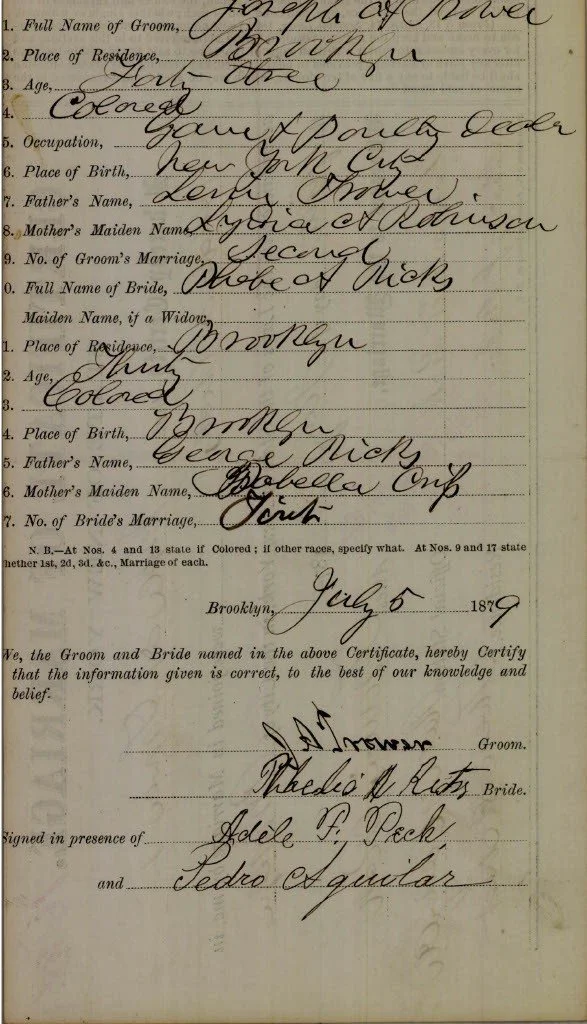 1. Full Name of Groom, Joseph A Trower
2. Place of Residence, Brooklyn
3. Age, Forty three
4. Colored
5. Occupation, Game & Poultry Dealer
6. Place of Birth, New York City
7. Father's Name, Trower
8. Mother's Maiden Name, Lydia A Robinson
9. No. of Groom's Marriage, Second
0. Full Name of Bride, Phebe A Ricks
Maiden Name, if a Widow,
1. Place of Residence, Brooklyn
2. Age, Thirty
3. Colored
4. Place of Birth, Brooklyn
5. Father's Name, George Ricks
6. Mother's Maiden Name, Isabella
7. No. of Bride's Marriage, First
N. B.—At Nos. 4 and 13 state if Colored; if other races, specify what. At Nos. 9 and 17 state
hether 1st, 2d, 3d. &c., Marriage of each.
Brooklyn, July 5 1879
We, the Groom and Bride named in the above Certificate, hereby Certify
that the information given is correct, to the best of our knowledge and
belief.
J A Trower Groom.
Bride.
Signed in presence of Adele F. Peck,
and Pedro Aguilar